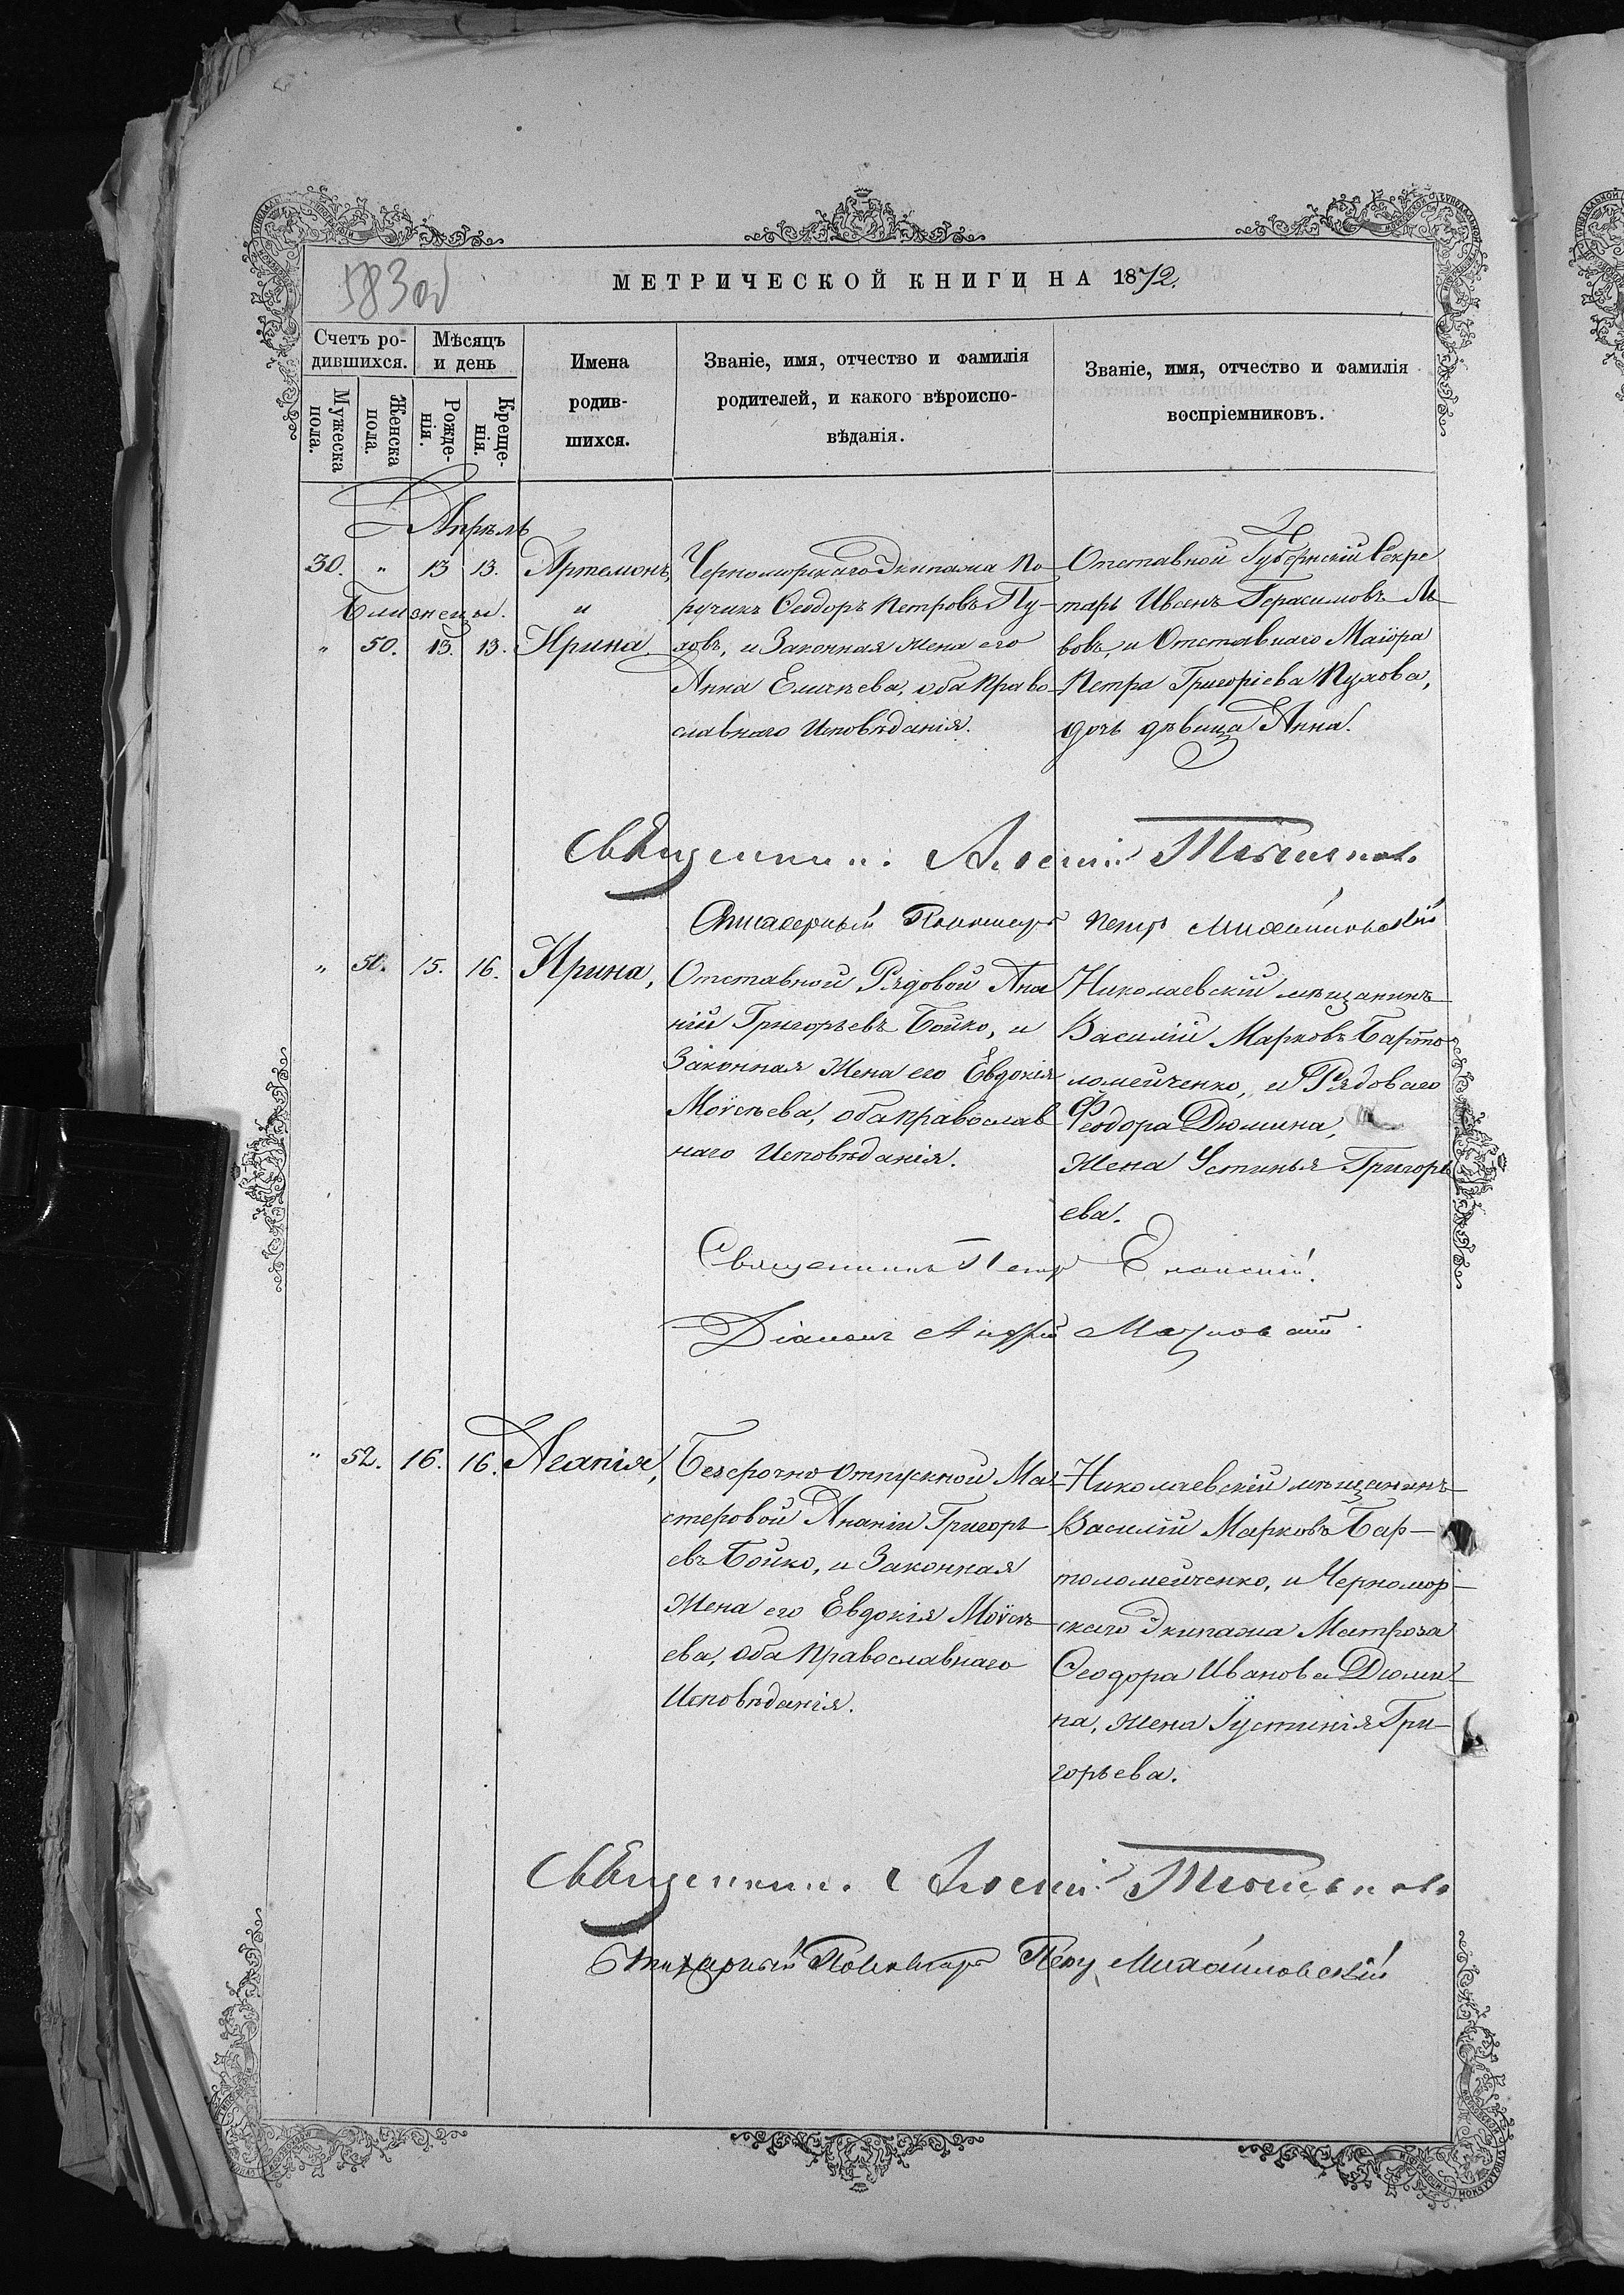 МЕТРИЧЕСКОЙ КНИГИ НА 1872.
583 об
Счетъ ро-
дившихся.
Мужеска
пола.
Женска
пола
Мѣсяцъ
и день
Рожде-
нія.
Креще-
нія.
Имена
родив-
шихся.
Званіе, имя, отчество и фамилія
родителей, и какого вѣроиспо-
вѣданія.
Званіе, имя, отчество и фамилія
воспріемниковъ.
Апрѣль
30. " 13 13. Артемонъ,
Близнецы. и
" 50. 13. 13. Ирина.
Черноморскаго Экипажа По-
ручикъ Ѳеодоръ Петровъ Пу-
ховъ, и Законная жена его
Анна Елисѣева, оба Право
славнаго Исповѣданія.
Отставной Губернскій Секре
тарь Иванъ Герасимовъ Ль
вовъ, и Отставнаго Маіора
Петра Григоріева Пухова,
дочь дѣвица Анна.
Священникъ Алексій
Стихарный Пономарь Петръ Михайловскій
" 51. 15. 16. Ирина,
Отставной Рядовой Ана
ній Григорьевъ Бойко, и
Законная жена его Евдокія
Моѵсѣева, оба православ
наго Исповѣданія.
Николаевскій мѣщанинъ
Василій Марковъ Барто
ломейченко, и Рядоваго
Ѳеодора Дюмина,
жена Устинья Григорь
ева.
Священникъ Петръ Еланскій.
Діаконъ Андрей
" 52. 16. 16. Агапія,
Безсрочно отпускной Ма-
стеровой Ананій Григорь
евъ Бойко, и Законная
Жена его Евдокія Моѵсѣ
ева, оба Православнаго
Исповѣданія.
Николаевскій мѣщанинъ
Василій Марковъ Бар-
толомейченко, и Черномор-
скаго Экипажа Матроза
Ѳеодора Иванова Дюми-
на, жена Іустинія Гри-
горьева.
Священникъ Алексій
Стихарный Пономарь Петръ Михайловскій